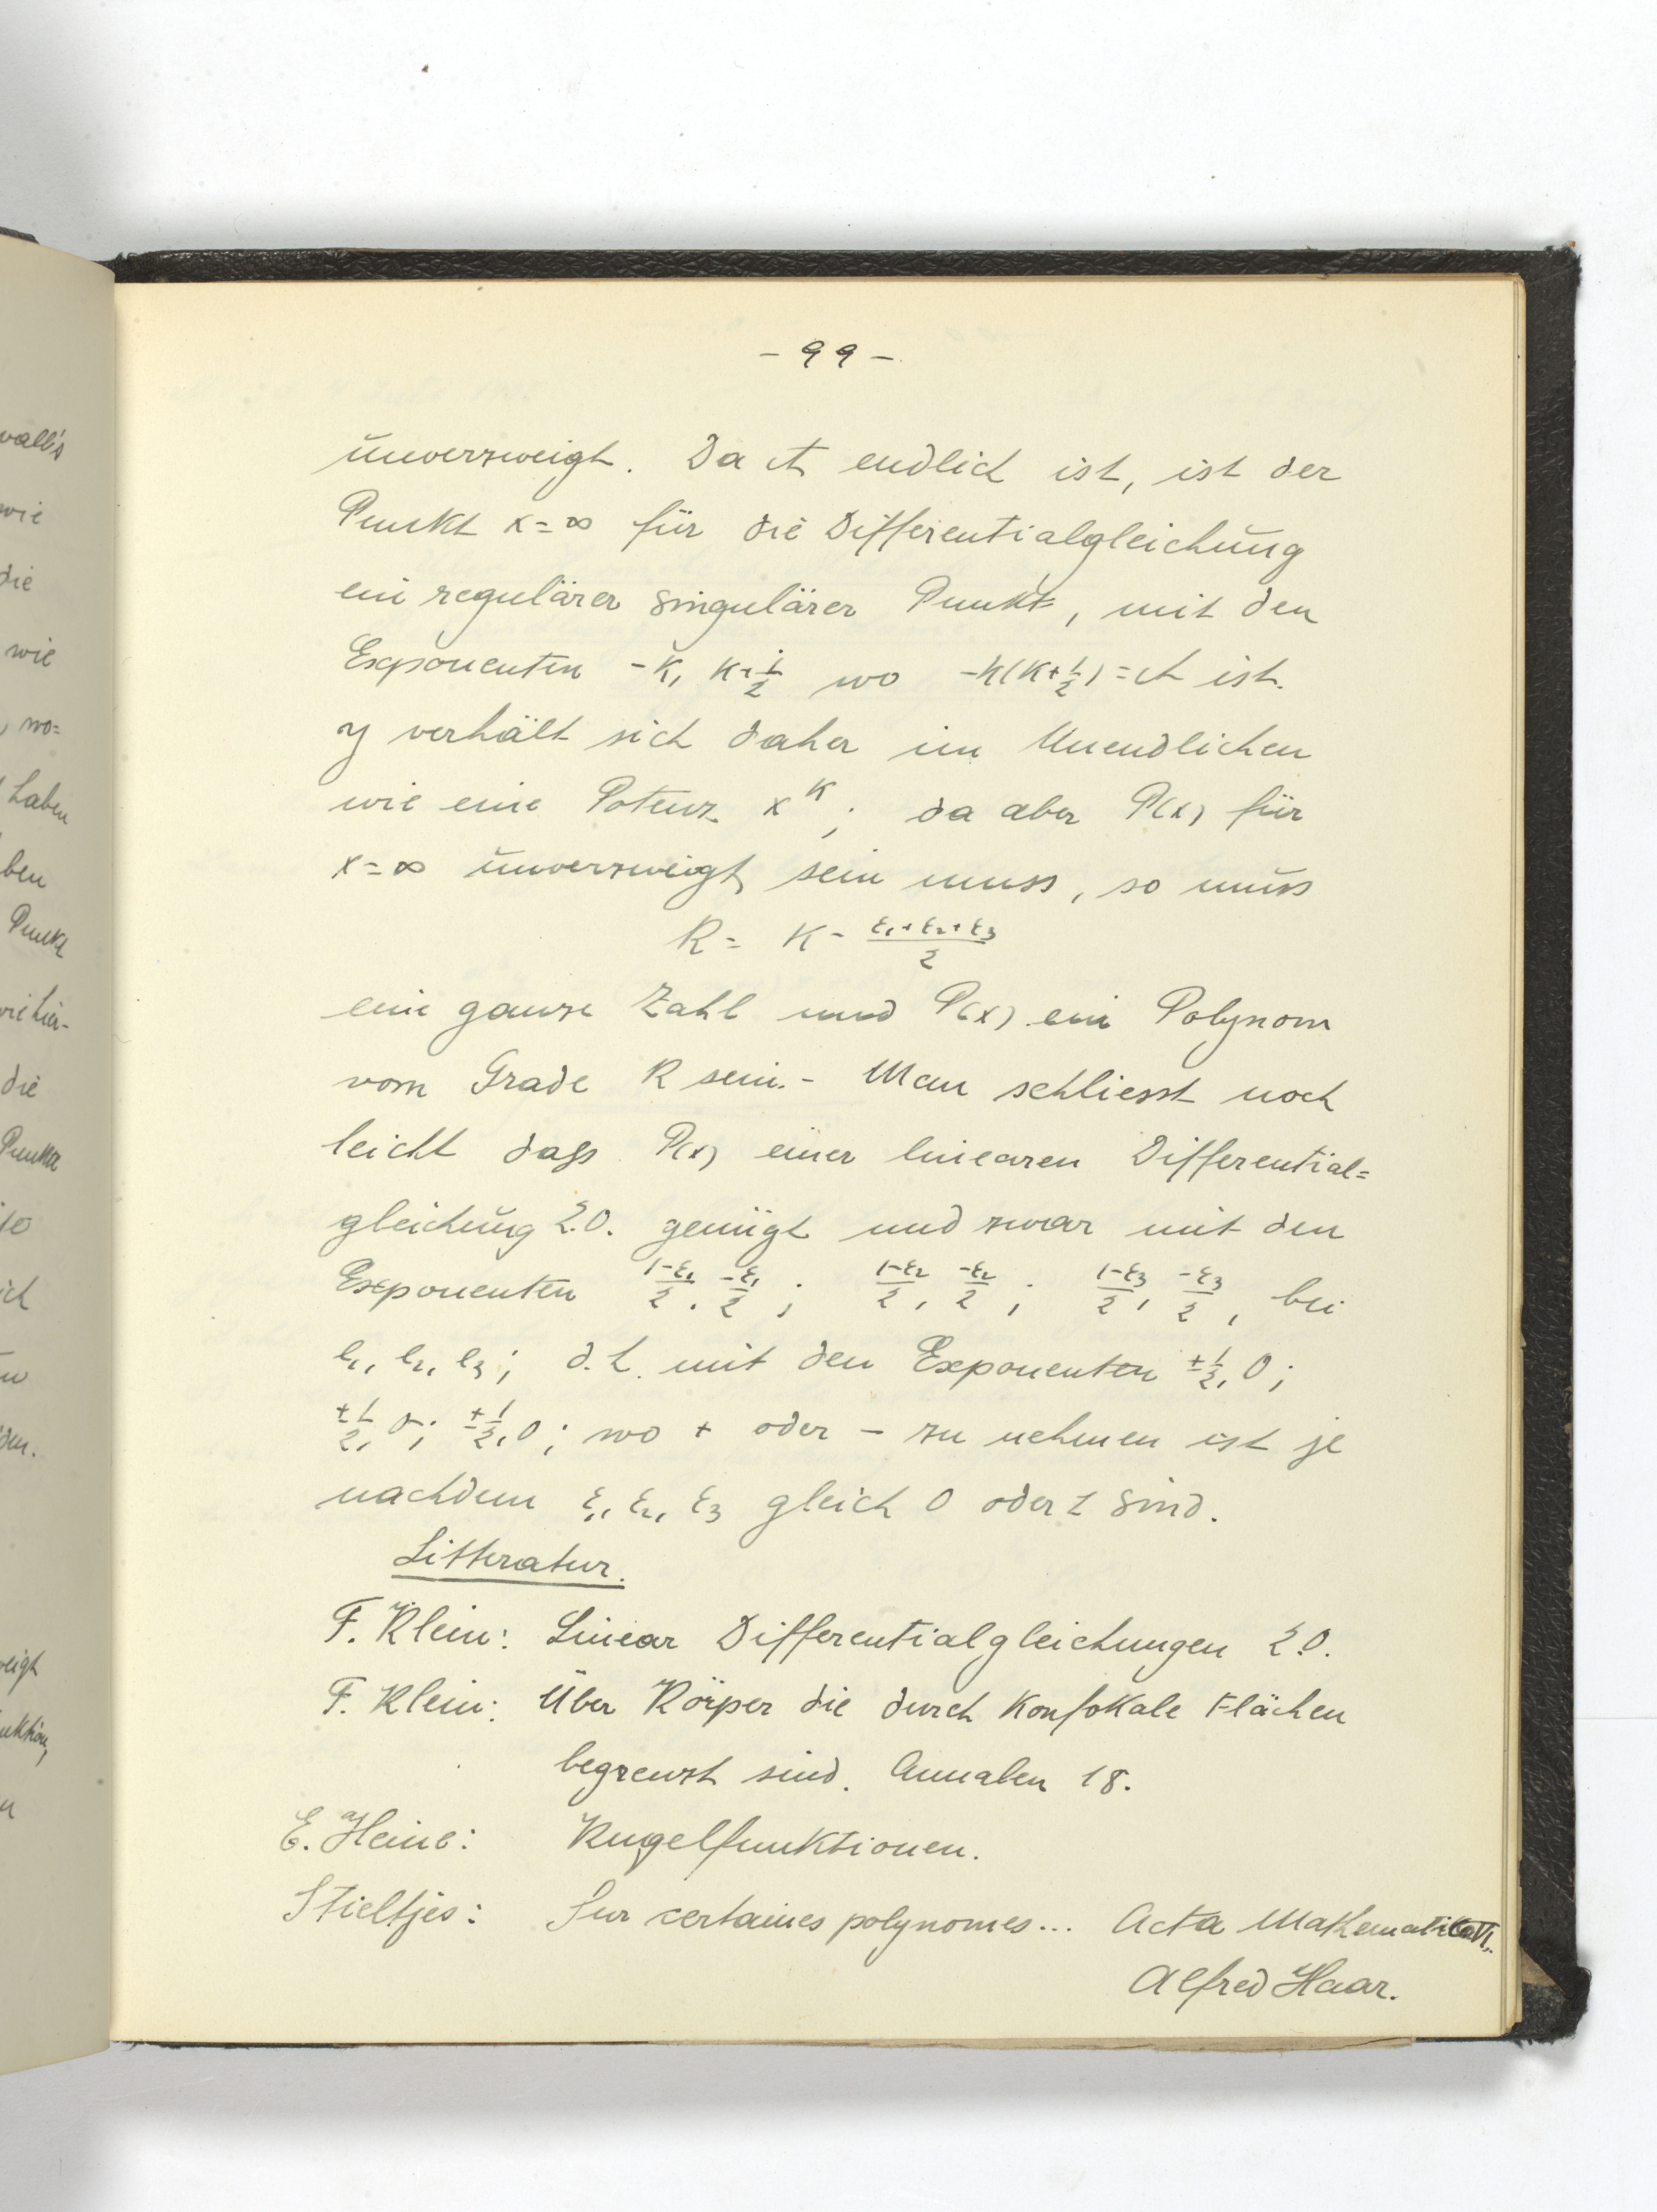 - 99 -
unverzweigt. Da A endlich ist, ist der
Punkt x=∞ für die Differentialgleichung
ein regulärer singulärer Punkt, mit den
Exponenten -K, K+1/2 wo -K(K+1/2)=A ist.
y verhält sich daher im Unendlichen
wie eine Potenz x^K; da aber P(x) für
x=∞ unverzweigt sein muss, so muss
R = K - (ε₁+ε₂+ε₃)/2
eine ganze Zahl und P(x) ein Polynom
vom Grade R sein.- Man schliesst noch
leicht dass P(x) einer linearen Differential=
gleichung 2.O. genügt und zwar mit den
Exponenten (1-ε₁)/2, -ε₁/2; (1-ε₂)/2, -ε₂/2; (1-ε₃)/2, -ε₃/2, bei
e₁, e₂, e₃; d.h. mit den Exponenten ±1/2, 0;
±1/2, 0; ±1/2, 0; wo + oder - zu nehmen ist je
nachdem ε₁, ε₂, ε₃ gleich 0 oder 1 sind.
Litteratur.
F. Klein: Linear Differentialgleichungen 2.O.
F. Klein: Über Körper die durch Konfokale Flächen
begrenzt sind. Annalen 18.
E. Heine: Kugelfunktionen.
Stieltjes: Sur certaines polynomes... Acta Mathematika VI.
Alfred Haar.